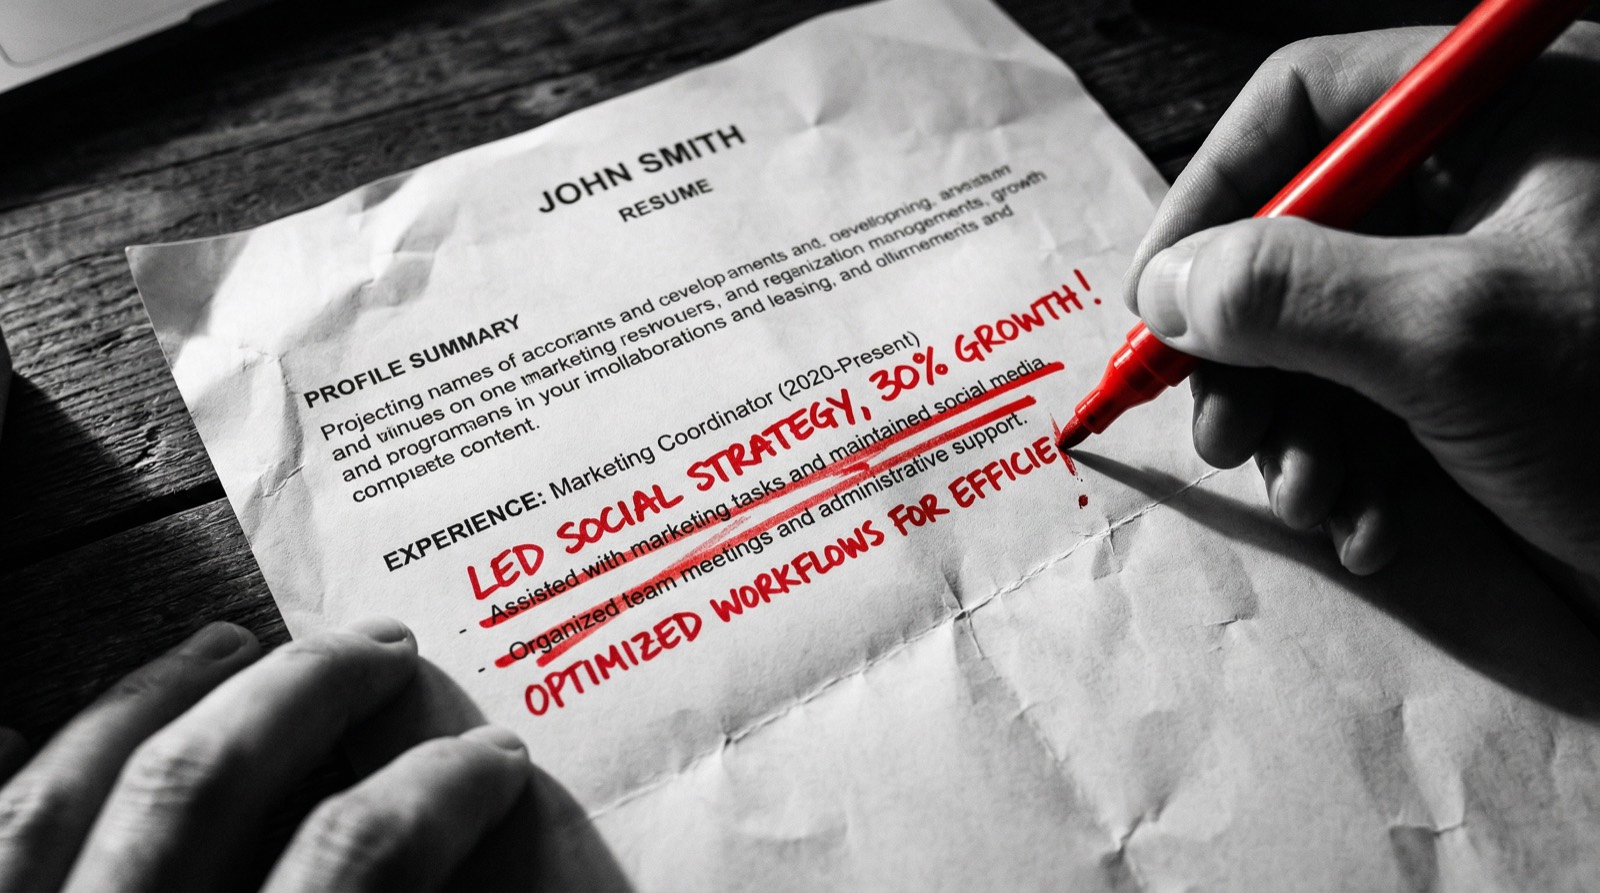 JOHN SMITH
RESUME
PROFILE SUMMARY
Projecting names of accorṛants and cevelop aments and, developning,
and winues on one marketing and regenization managements, growth
and programmens in your imollaborations and leasing, and and
content.
EXPERIENCE: Marketing Coordinator (2020-Present)
LED SOCIAL STRATEGY, 30% GROWTH!
- Assisted with marketing tasks and maintained social media.
- Organized team meetings and administrative support.
OPTIMIZED WORKFLOWS FOR EFFICIE